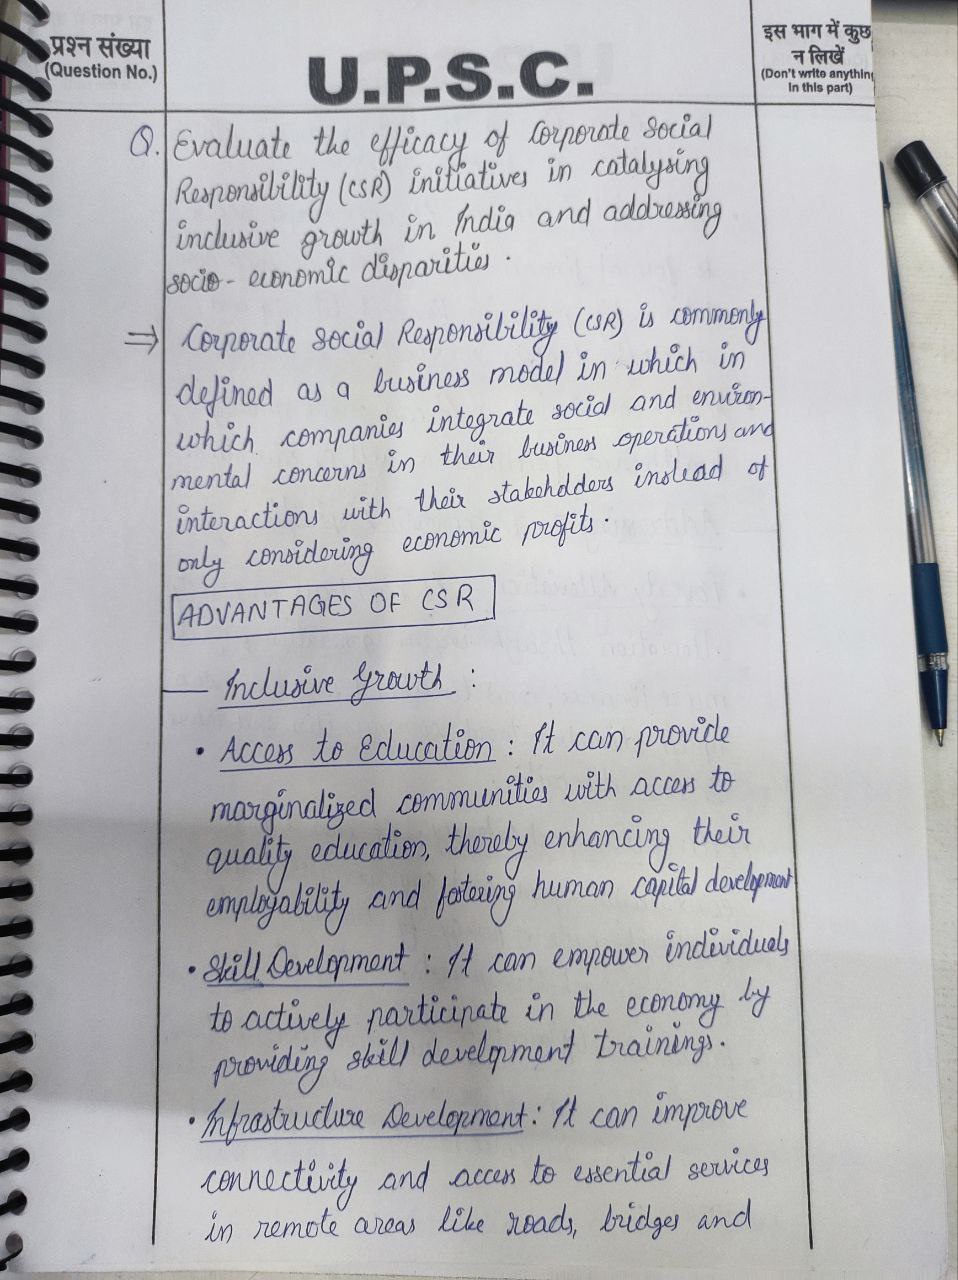 प्रश्न संख्या
(Question No.)
U.P.S.C.
इस भाग में कुछ
न लिखें
(Don't write anything
in this part)
Q. Evaluate the efficacy of Corporate Social
Responsibility (CSR) initiatives in catalysing
inclusive growth in India and addressing
socio-economic disparities.
⇒ Corporate Social Responsibility (CSR) is commonly
defined as a business model in which in
which companies integrate social and environ-
mental concerns in their business operations and
interactions with their stakeholders instead of
only considering economic profits.
ADVANTAGES OF CSR
— Inclusive Growth :
• Access to Education : It can provide
marginalized communities with access to
quality education, thereby enhancing their
employability and fostering human capital development
• Skill Development : It can empower individuals
to actively participate in the economy by
providing skill development trainings.
• Infrastructure Development : It can improve
connectivity and access to essential services
in remote areas like roads, bridges and